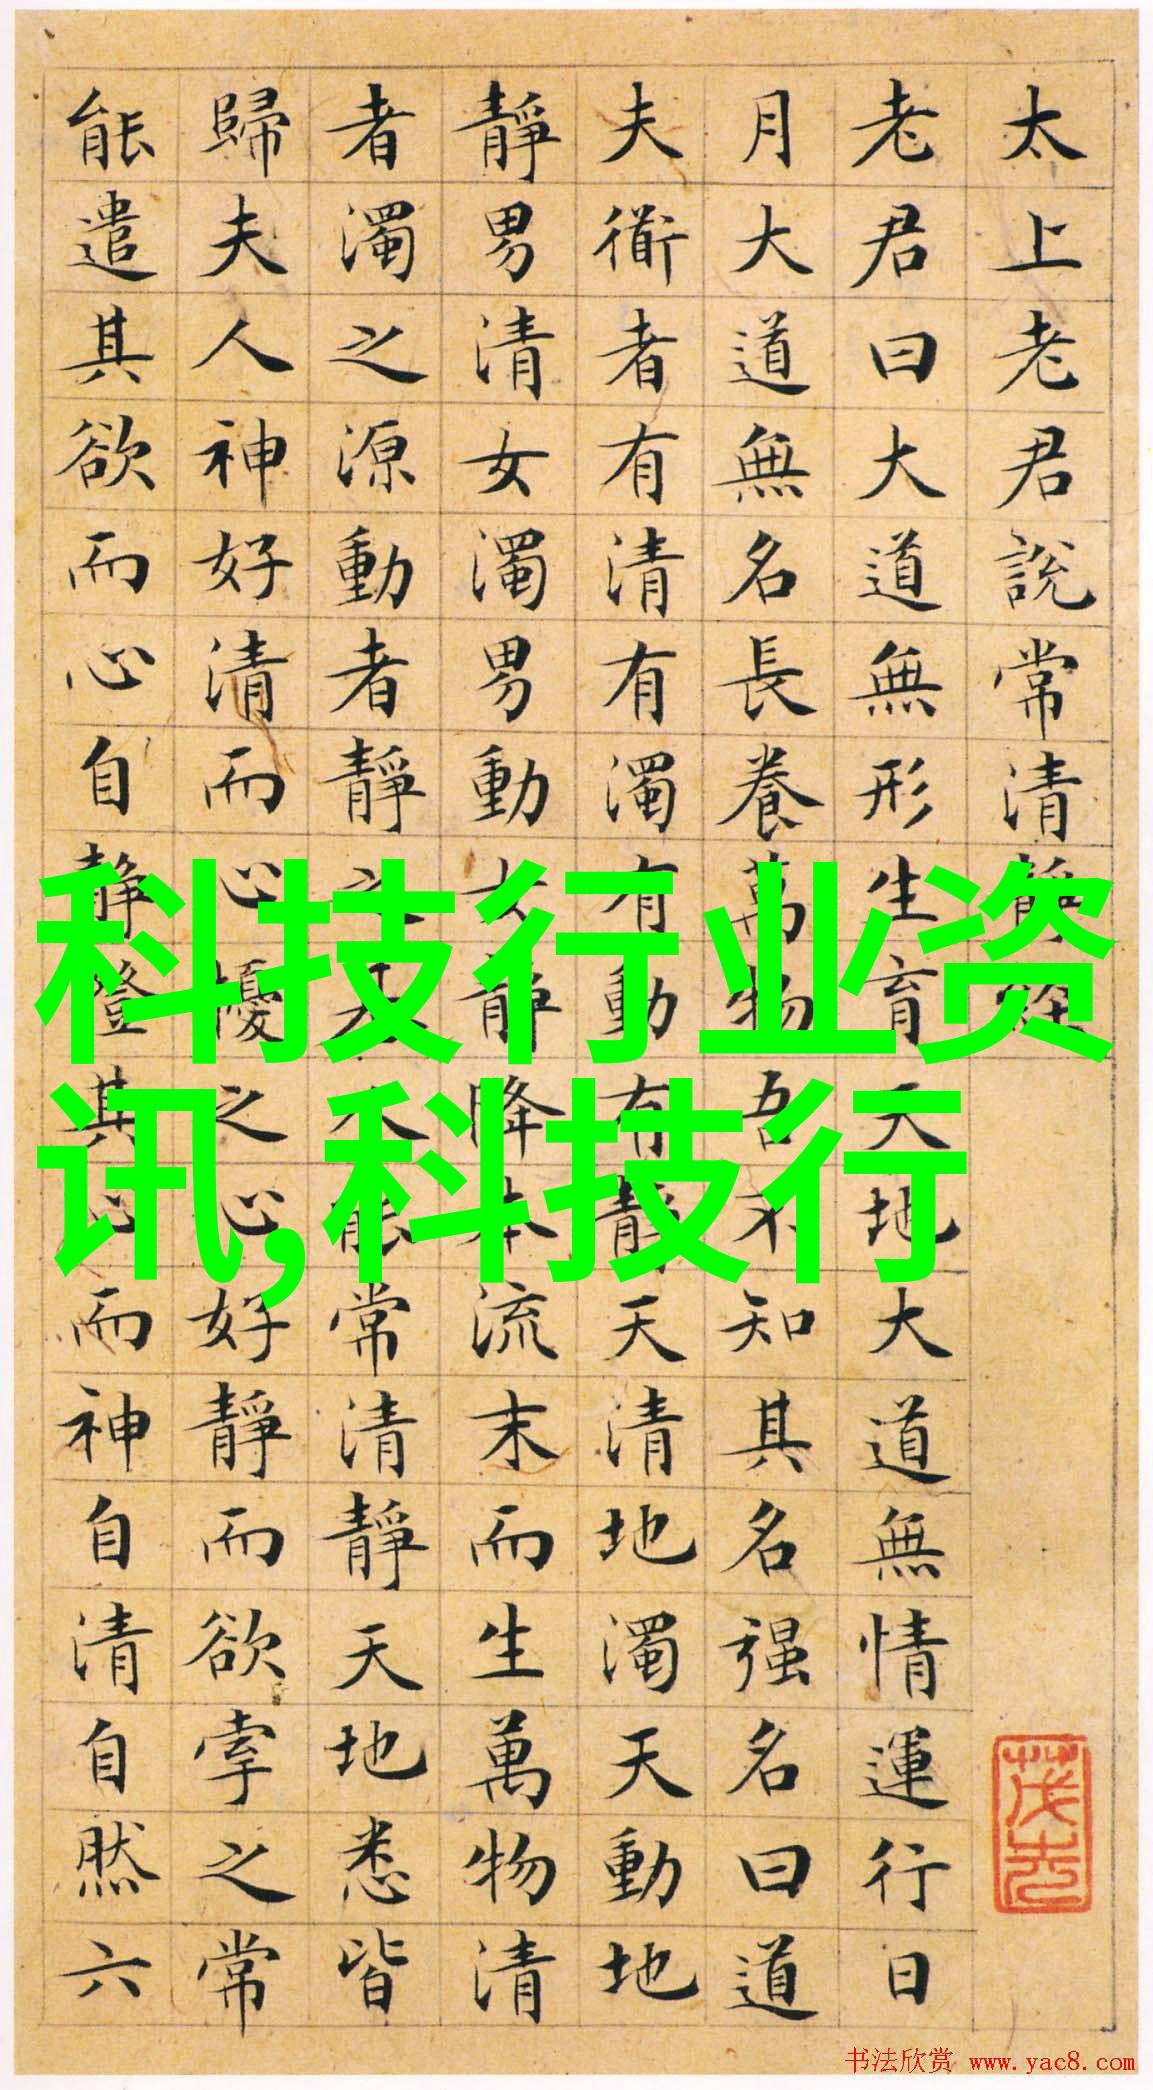 太上老君說常清靜經
老君曰大道無形生育天地大道無情運行日
月大道無名長養萬物吾不知其名强名曰道
夫衜者有清有濁有動有靜天清地濁天動地
靜男清女濁男動女靜降本流末而生萬物清
者濁之源動者靜之基人能常清靜天地悉皆
歸夫人神好清而心擾之心好靜而欲牽之常
能遣其欲而心自靜澄其心而神自清自然六
科技行业资
讯,科技行
书法欣赏 www.yac8.com